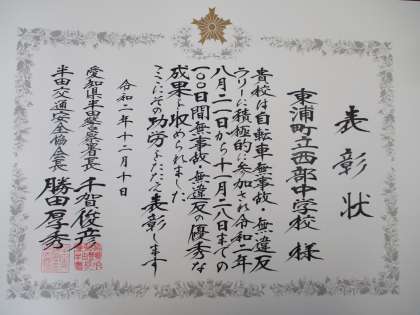 表彰状
東浦町立西部中学校 様
貴校は自転車無事故・無違反
ラリーに積極的に参加され令和二年
八月二一日から十一月二八日までの
一〇〇日間無事故・無違反の優秀な
成果を収められました
ここにその功労をたたえ表彰します
令和二年十二月十日
愛知県半田警察署長 千賀俊彦
半田交通安全協会長 勝田厚秀